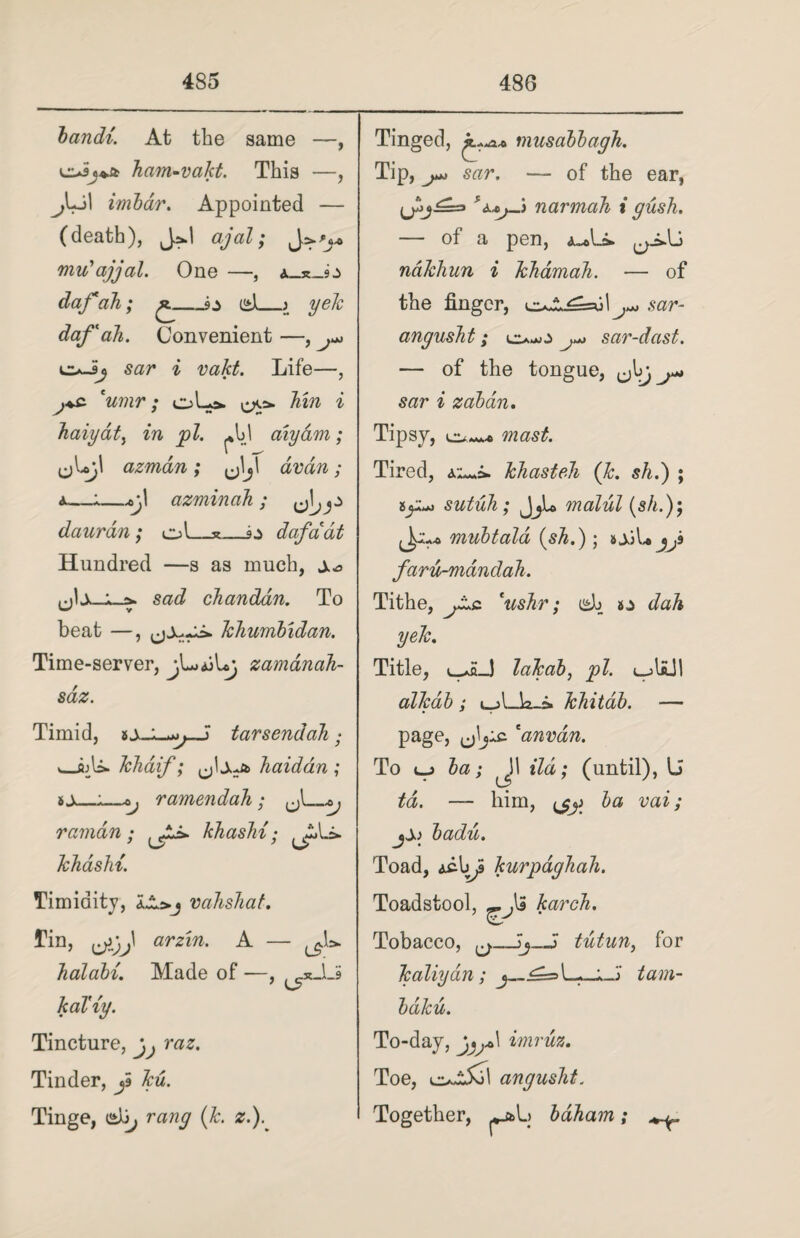 485
bandí. At the same —,
هموقت ham-vakt. This —,
امبار imbár. Appointed —
(death), اجل ajal; مؤجل
mu'ajjal. One —, دفعه
daf‘ah; یک دفع yek
daf‘ah. Convenient —, سر
وقت sar i vakt. Life—,
عمر ‘umr; حین حیات hín i
haiyát, in pl. ایام aíyám;
ازمان azmán; آوان áván;
ازمنه azminah; دوران
daurán; دفعات dafa‘át
Hundred —s as much, صد
چندان sad chandán. To
beat —, خنبیدن khumbídan.
Time-server, زمانه‌ساز zamánah-
sáz.
Timid, ترسنده tarsendah;
خائف kháif; هیدان haiddn;
رمنده ramendah; رمان
ramán; خشی khashí; خاشی
kháshí.
Timidity, وحشة vahshat.
Tin, ارزین arzín. A — حلبی
halabí. Made of —, قلعی
kal‘iy.
Tincture, رز raz.
Tinder, قو kú.
Tinge, رنگ rang (k. z.).
486
Tinged, مصبغ musabbagh.
Tip, سر sar. — of the ear,
نرمهٔ گوش narmah i gúsh.
— of a pen, ناخن خامه
nákhun i khámah. — of
the finger, سرانگشت sar-
angusht; سر دست sar-dast.
— of the tongue, سر زبان
sar i zabán.
Tipsy, مست mast.
Tired, خسته khasteh (k. sh.);
ستوه sutúh; ملول malúl (sh.);
مبتلی mubtalá (sh.); فرو مانده
farú-mándah.
Tithe, عشر ‘ushr; ده یک dah
yek.
Title, لقب lakab, pl. القاب
alkáb; خطاب khitáb. —
page, عنوان ‘anván.
To ب ba; الی ilá; (until), تا
tá. — him, بوی ba vai;
بدو badú.
Toad, قرباغه kurpághah.
Toadstool, قارچ karch.
Tobacco, توتن tútun, for
kaliyán; تنباکو tam-
bákú.
To-day, امروز imrúz.
Toe, انگشت angusht.
Together, باهم báham; بهم